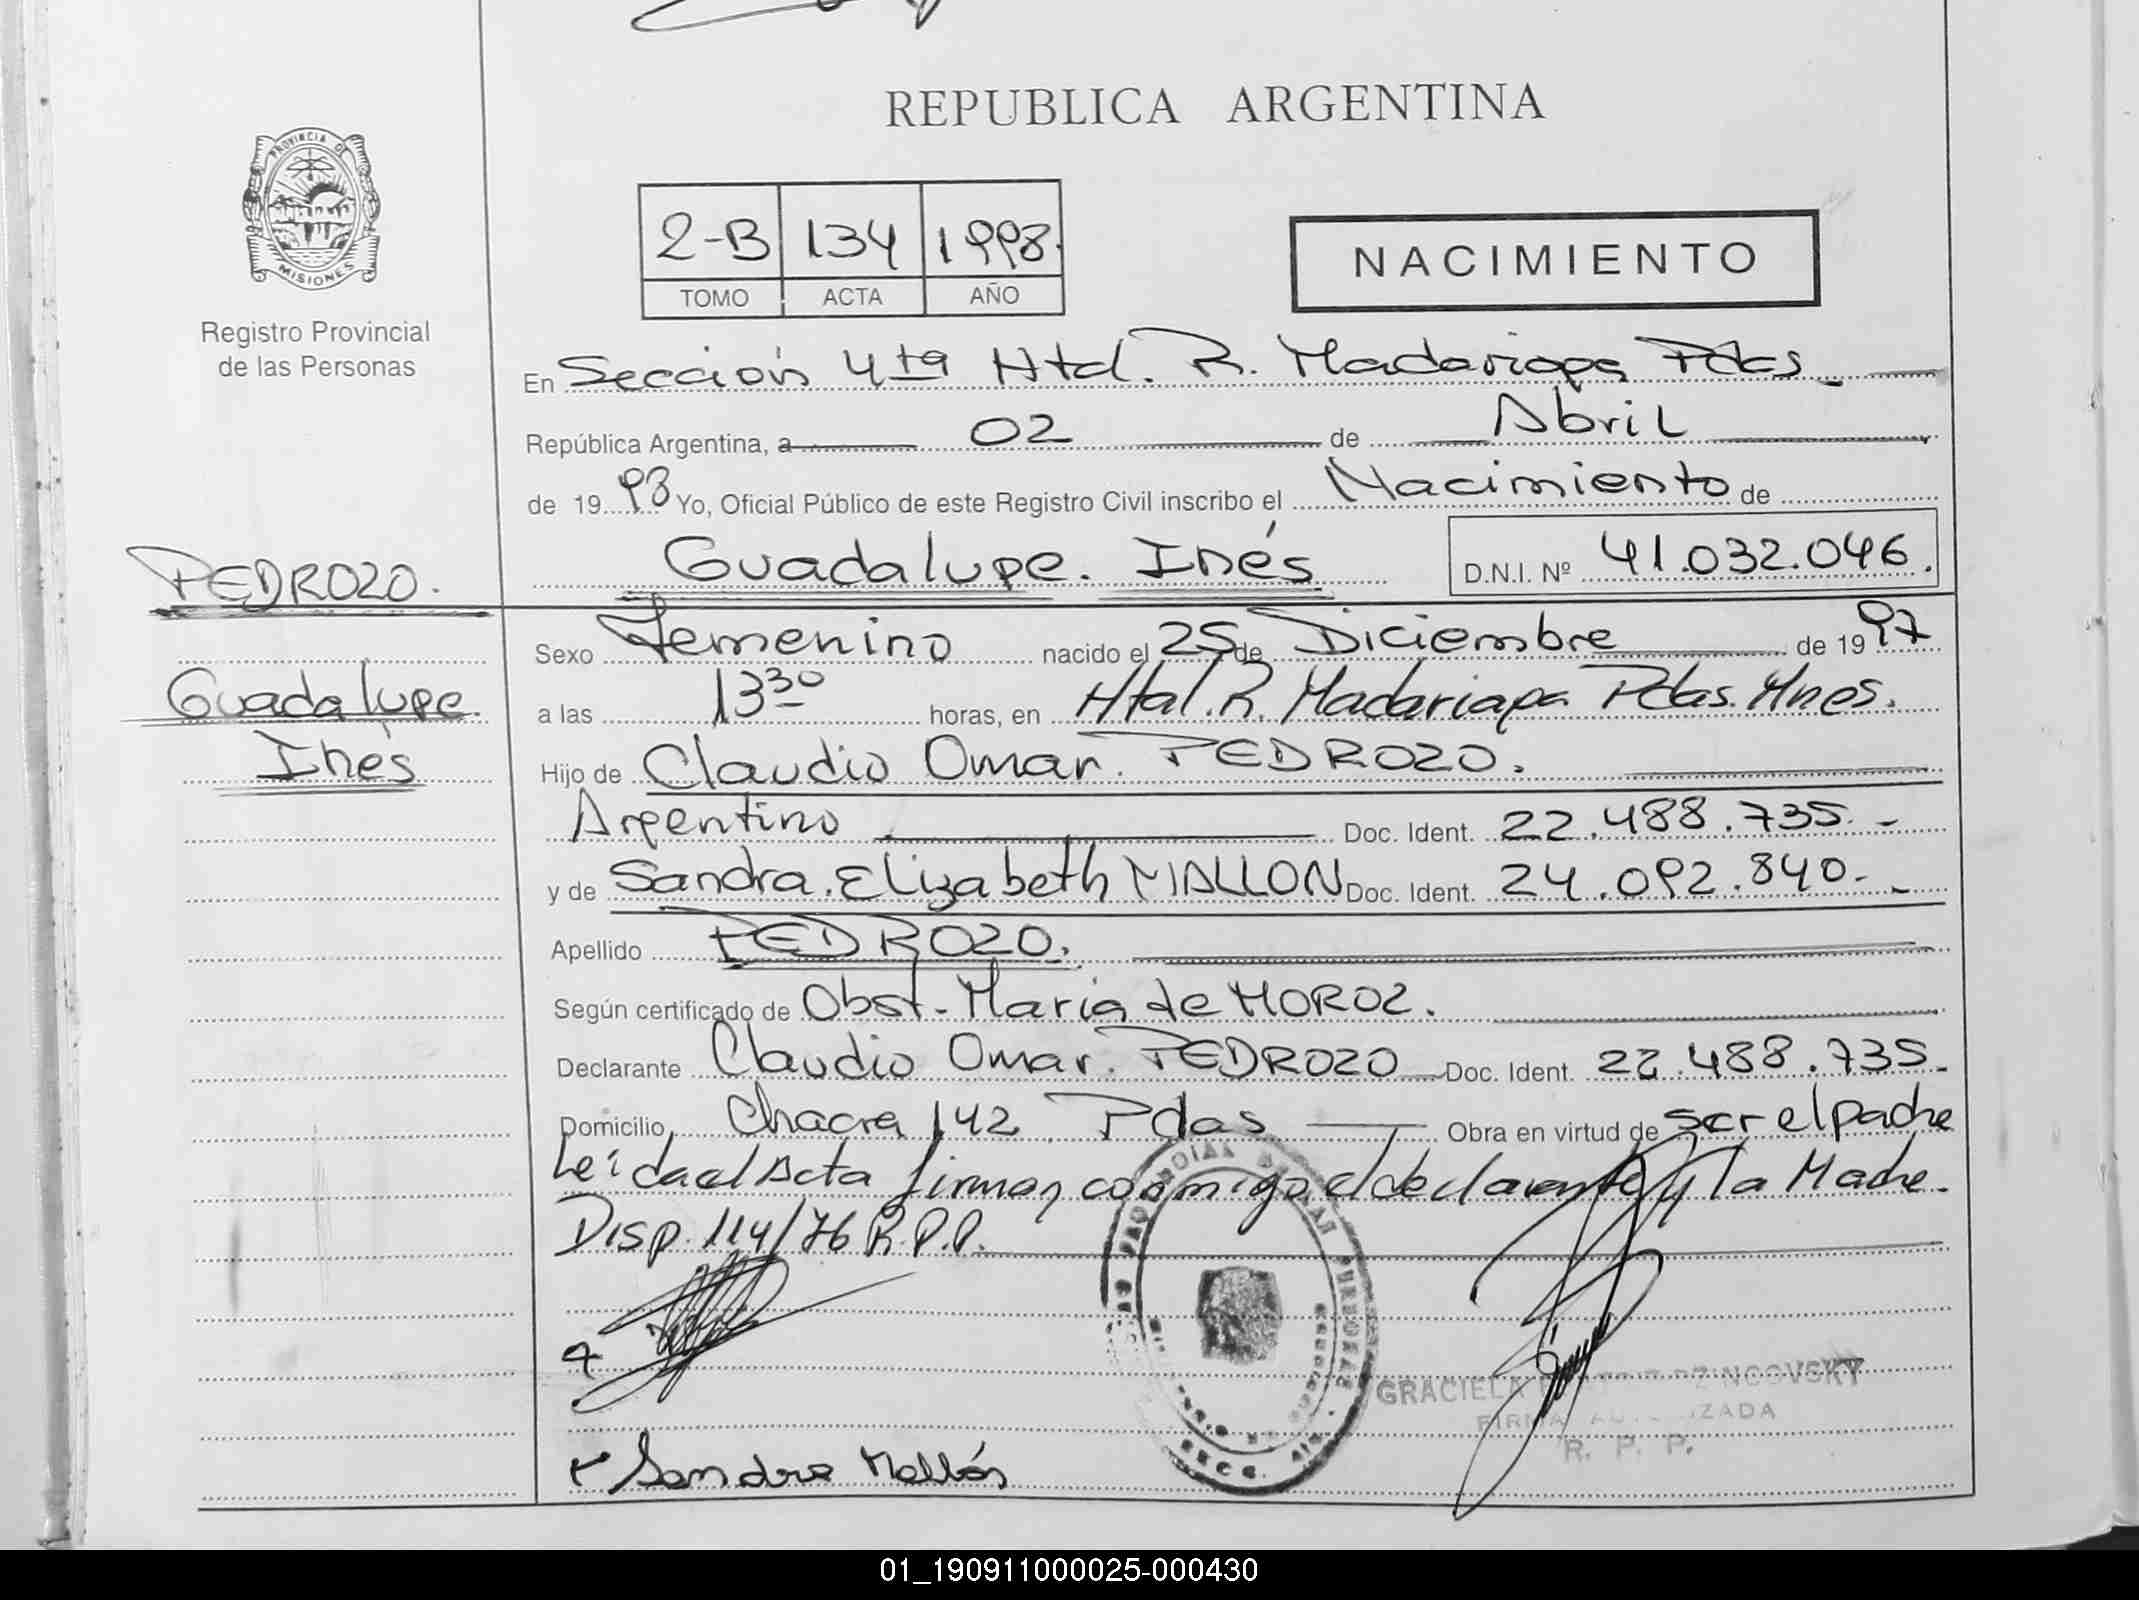 REPUBLICA ARGENTINA
PROVINCIA DE
MISIONES
Registro Provincial
de las Personas
2-B 134 1998
TOMO ACTA AÑO
NACIMIENTO
En Sección 4ta Htal. R. Madariaga Pdas
República Argentina, a 02 de Abril
de 1998 Yo, Oficial Público de este Registro Civil inscribo el Nacimiento de
Guadalupe Inés D.N.I. Nº 41.032.046.
PEDROZO.
Guadalupe
Inés
Sexo Femenino nacido el 25 de Diciembre de 1997
a las 13 30 horas, en Htal. R. Madariaga Pdas. Mnes.
Hijo de Claudio Omar PEDROZO.
Argentino Doc. Ident. 22.488.735.-
y de Sandra Elizabeth MALLON Doc. Ident. 24.092.840.-
Apellido PEDROZO.
Según certificado de Obst. Maria de MOROZ.
Declarante Claudio Omar PEDROZO Doc. Ident. 22.488.735.-
Domicilio Chacra 142 Pdas Obra en virtud de ser el padre
Leída el Acta firman conmigo el declarante y la Madre.
Disp. 114/76 R.P.P.
GRACIELA
FIRMA AUTORIZADA
R. P. P.
Sandra Mallón
01_190911000025-000430